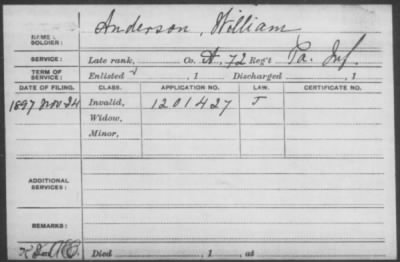 Anderson, William
NAME OF SOLDIER:
SERVICE: Late rank, Co. A. 72 Reg't Pa. Inf.
TERM OF SERVICE: Enlisted , 1 Discharged , 1
DATE OF FILING. CLASS. APPLICATION NO. LAW. CERTIFICATE NO.
1897 Nov 24 Invalid, 1201427 J
Widow,
Minor,
ADDITIONAL SERVICES:
REMARKS:
Died , 1 , at